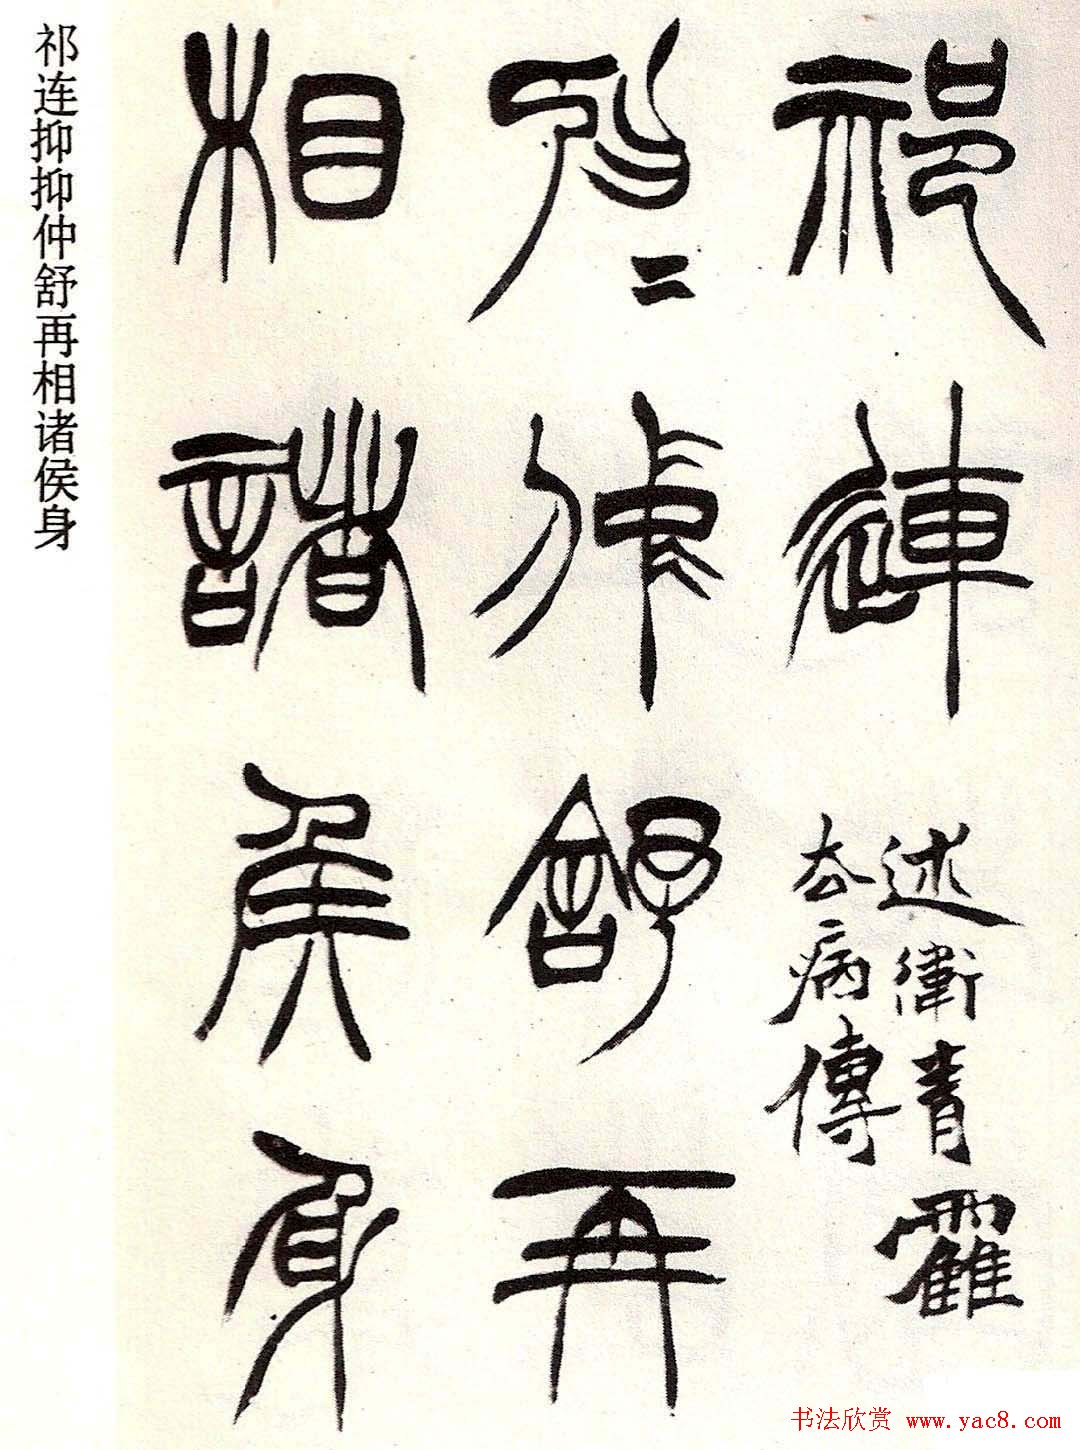 祁連
述衛青靃
去病傳
抑二仲舒再
相諸侯身
祁连抑抑仲舒再相诸侯身
书法欣赏 www.yac8.com